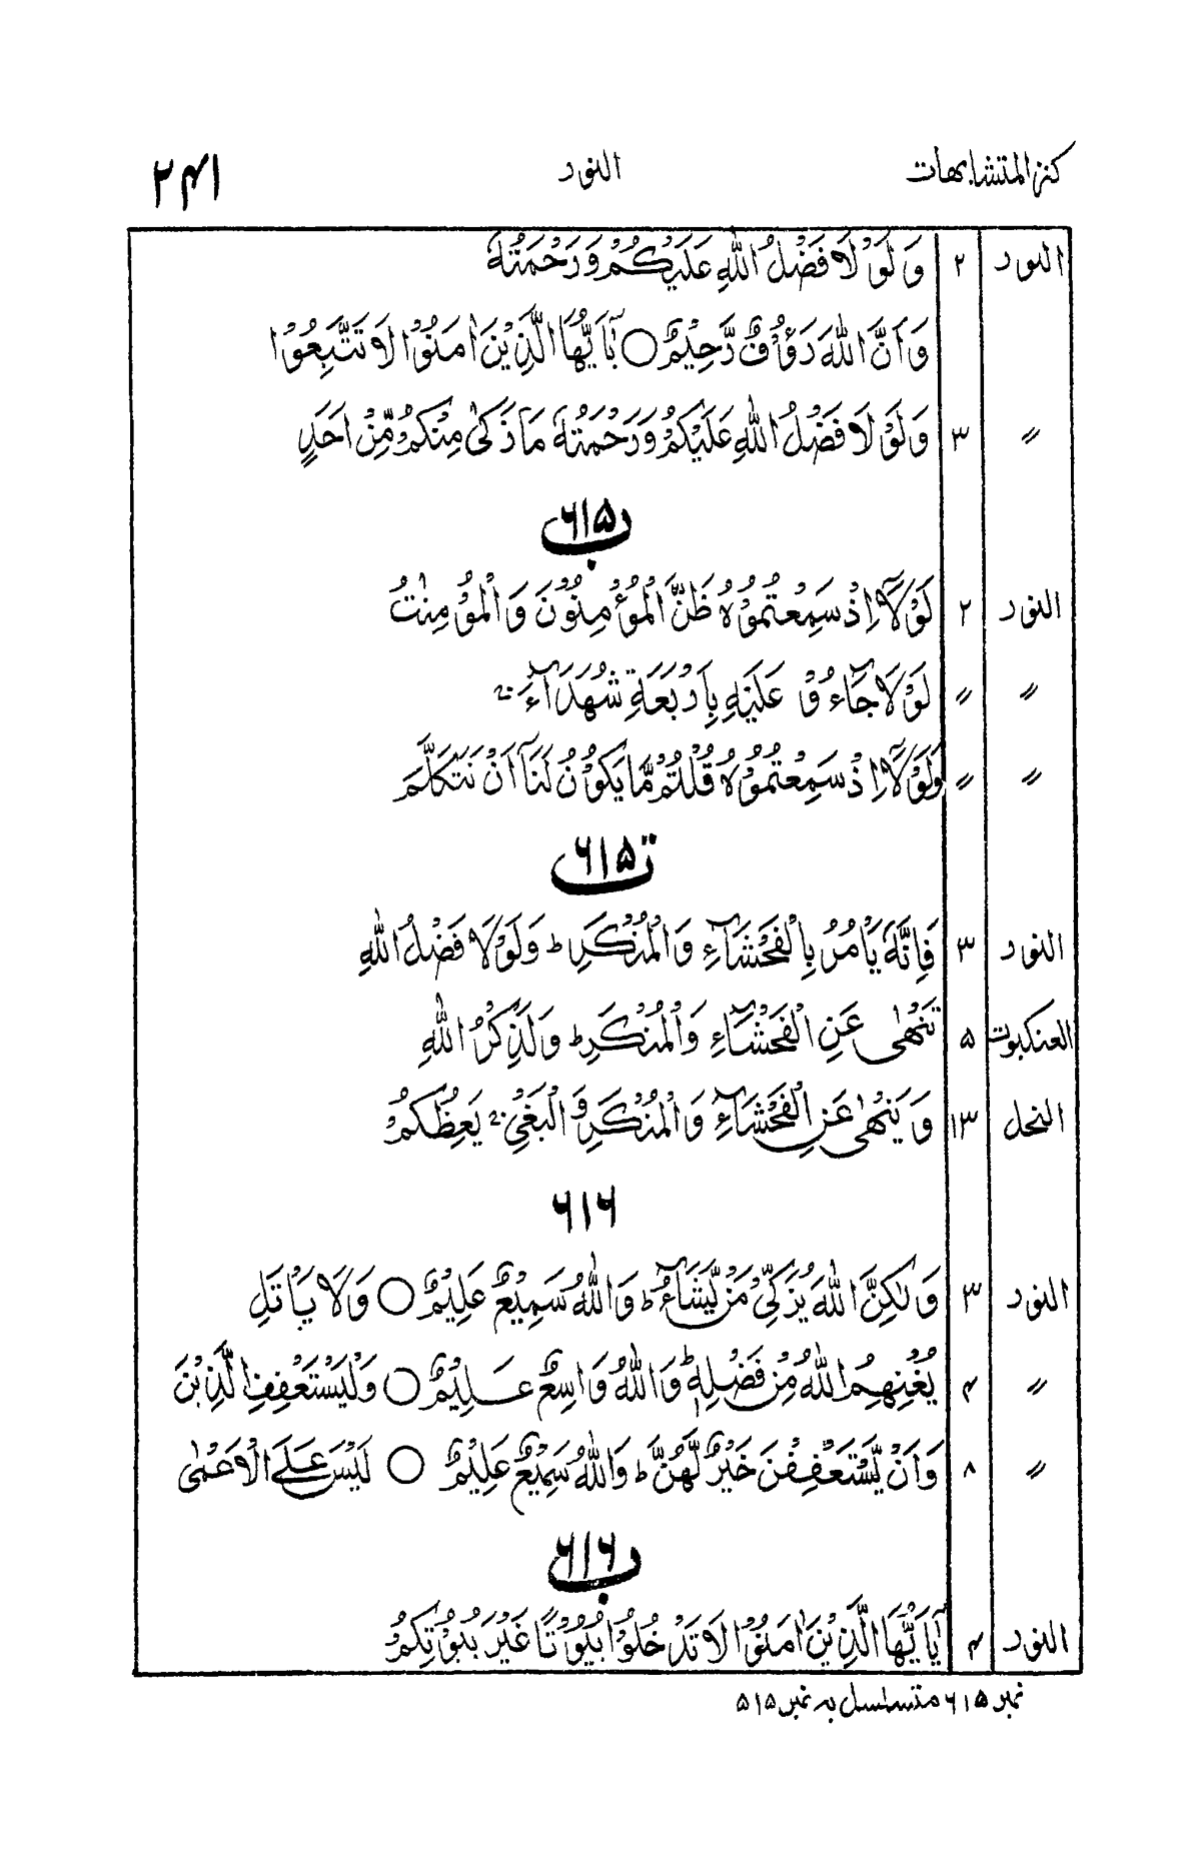 كنز المتشابهات النور ۲۴۱
النور ۲ وَلَوْلَا فَضْلُ اللّٰهِ عَلَيْكُمْ وَرَحْمَتُهٗ
وَاَنَّ اللّٰهَ رَءُوْفٌ رَّحِيْمٌ ○ يٰٓاَيُّهَا الَّذِيْنَ اٰمَنُوْا لَا تَتَّبِعُوْا
〃 ۳ وَلَوْلَا فَضْلُ اللّٰهِ عَلَيْكُمْ وَرَحْمَتُهٗ مَا زَكٰى مِنْكُمْ مِّنْ اَحَدٍ
۶۱۵ ب
النور ۲ لَوْلَآ اِذْ سَمِعْتُمُوْهُ ظَنَّ الْمُؤْمِنُوْنَ وَالْمُؤْمِنٰتُ
〃 〃 لَوْلَا جَآءُوْ عَلَيْهِ بِاَرْبَعَةِ شُهَدَآءَ ۚ
〃 〃 وَلَوْلَآ اِذْ سَمِعْتُمُوْهُ قُلْتُمْ مَّا يَكُوْنُ لَنَآ اَنْ نَّتَكَلَّمَ
۶۱۵ ت
النور ۳ فَاِنَّهٗ يَاْمُرُ بِالْفَحْشَآءِ وَالْمُنْكَرِ ؕ وَلَوْلَا فَضْلُ اللّٰهِ
العنكبوت ۵ تَنْهٰى عَنِ الْفَحْشَآءِ وَالْمُنْكَرِ ؕ وَلَذِكْرُ اللّٰهِ
النحل ۱۳ وَيَنْهٰى عَنِ الْفَحْشَآءِ وَالْمُنْكَرِ وَالْبَغْيِ ۚ يَعِظُكُمْ
۶۱۶
النور ۳ وَلٰكِنَّ اللّٰهَ يُزَكِّيْ مَنْ يَّشَآءُ ؕ وَاللّٰهُ سَمِيْعٌ عَلِيْمٌ ○ وَلَا يَاْتَلِ
〃 ۴ يُغْنِهِمُ اللّٰهُ مِنْ فَضْلِهٖ ؕ وَاللّٰهُ وَاسِعٌ عَلِيْمٌ ○ وَلْيَسْتَعْفِفِ الَّذِيْنَ
〃 ۸ وَاَنْ يَّسْتَعْفِفْنَ خَيْرٌ لَّهُنَّ ؕ وَاللّٰهُ سَمِيْعٌ عَلِيْمٌ ○ لَيْسَ عَلَى الْاَعْمٰى
۶۱۶ ب
النور ۴ يٰٓاَيُّهَا الَّذِيْنَ اٰمَنُوْا لَا تَدْخُلُوْا بُيُوْتًا غَيْرَ بُيُوْتِكُمْ
نمبر ۶۱۵ متسلسل بہ نمبر ۵۱۵